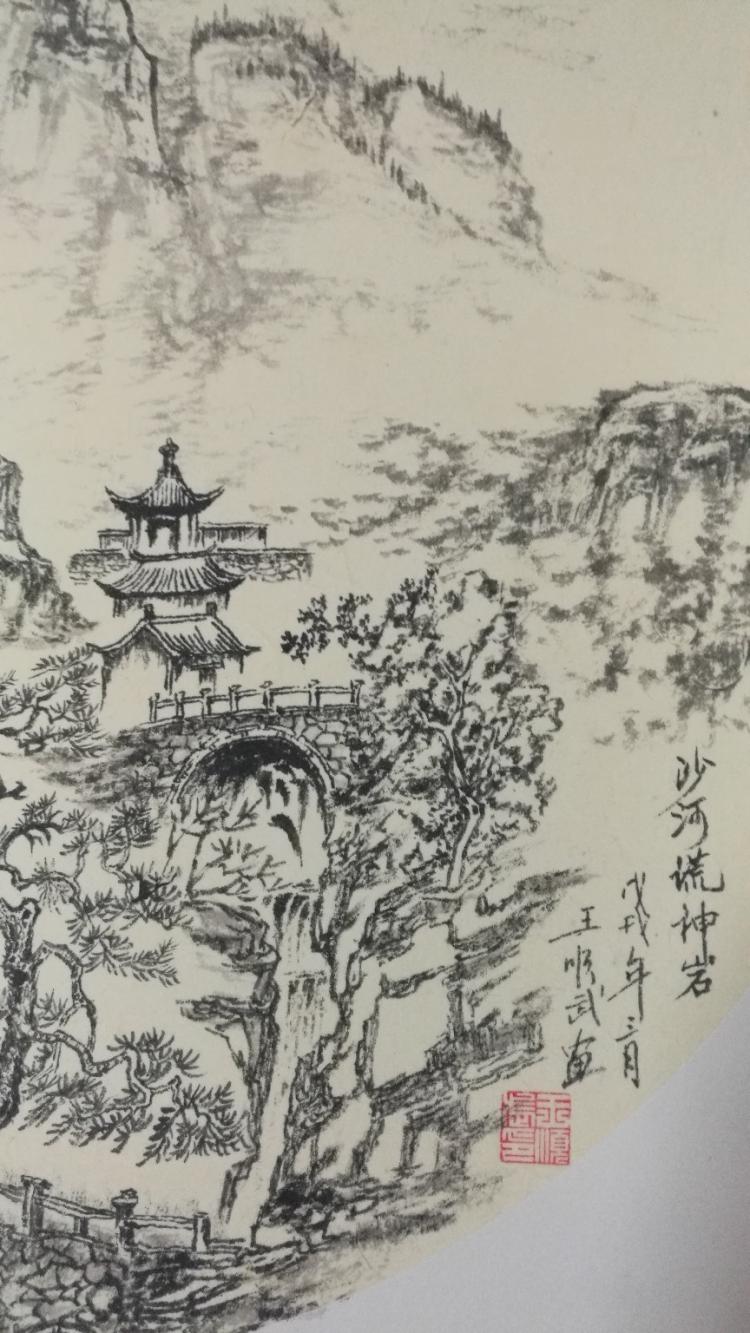 沙河谎神岩
戊戌年三月
王顺武画
王順
武印